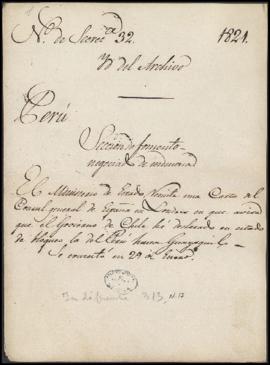 N.º de Secret.ª 32. 1821.
Yd del Archivo
Perú
Sección de fomento
negociado de
El Ministerio de Estado, remite una Carta del
Consul general de España en Londres en que avisa
que el Gobierno de Chile ha declarado en estado
de bloqueo la del Perú hasta Guayaquil.
Se contestó en 29 de Enero.
Indiferente 313, N.17